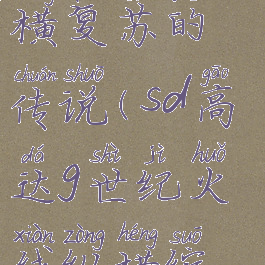 横复苏的
chuán shuō gāo
传说(sd高
dá shì jì huǒ
达9世纪火
xiàn zòng héng suō
线纵横综